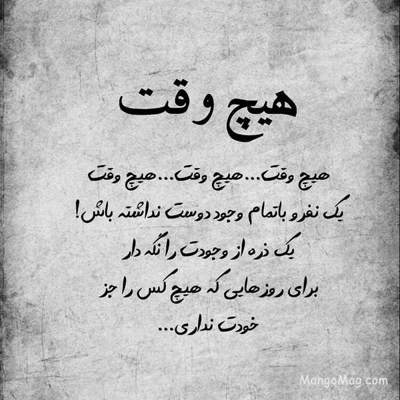 هیچ وقت
هیچ وقت...هیچ وقت...هیچ وقت
یک نفرو باتمام وجود دوست نداشته باش!
یک ذره از وجودت را نگه دار
برای روزهایی که هیچ کس را جز
خودت نداری...
MangoMag.com